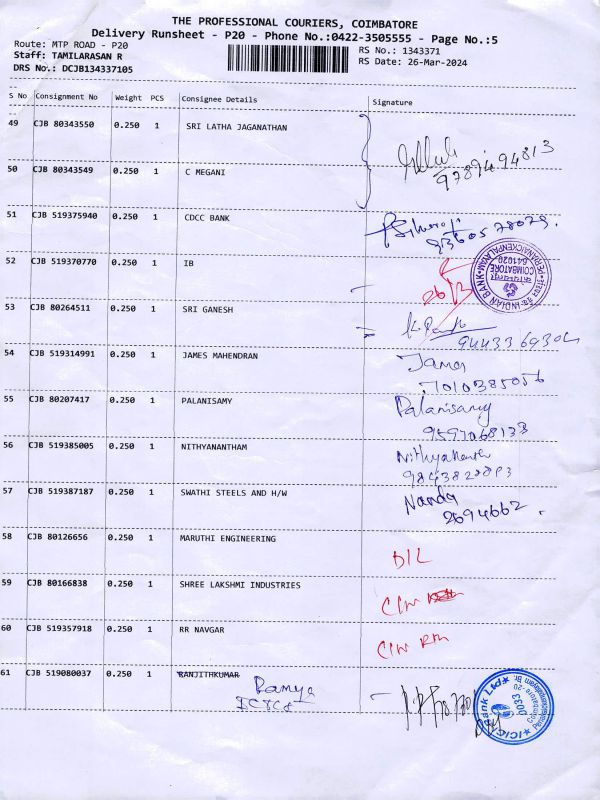 THE PROFESSIONAL COURIERS, COIMBATORE
Delivery Runsheet - P20 - Phone No.:0422-3505555 - Page No.:5
Route: MTP ROAD - P20
Staff: TAMILARASAN R
DRS No.: DCJB134337105
RS No.: 1343371
RS Date: 26-Mar-2024
S No Consignment No Weight PCS Consignee Details Signature
49 CJB 80343550 0.250 1 SRI LATHA JAGANATHAN
50 CJB 80343549 0.250 1 C MEGANI
9789494813
51 CJB 519375940 0.250 1 CDCC BANK
52 CJB 519370770 0.250 1 IB
26/3
INDIAN BANK
COIMBATORE
641020
53 CJB 80264511 0.250 1 SRI GANESH
54 CJB 519314991 0.250 1 JAMES MAHENDRAN
James
7010385056
55 CJB 80207417 0.250 1 PALANISAMY
Palanisamy
9597068133
56 CJB 519385005 0.250 1 NITHYANANTHAM
57 CJB 519387187 0.250 1 SWATHI STEELS AND H/W
Nanda
2694662
58 CJB 80126656 0.250 1 MARUTHI ENGINEERING
D/L
59 CJB 80166838 0.250 1 SHREE LAKSHMI INDUSTRIES
60 CJB 519357918 0.250 1 RR NAVGAR
61 CJB 519080037 0.250 1 RANJITHKUMAR
Ramya
ICICI
ICICI Bank Ltd
0033